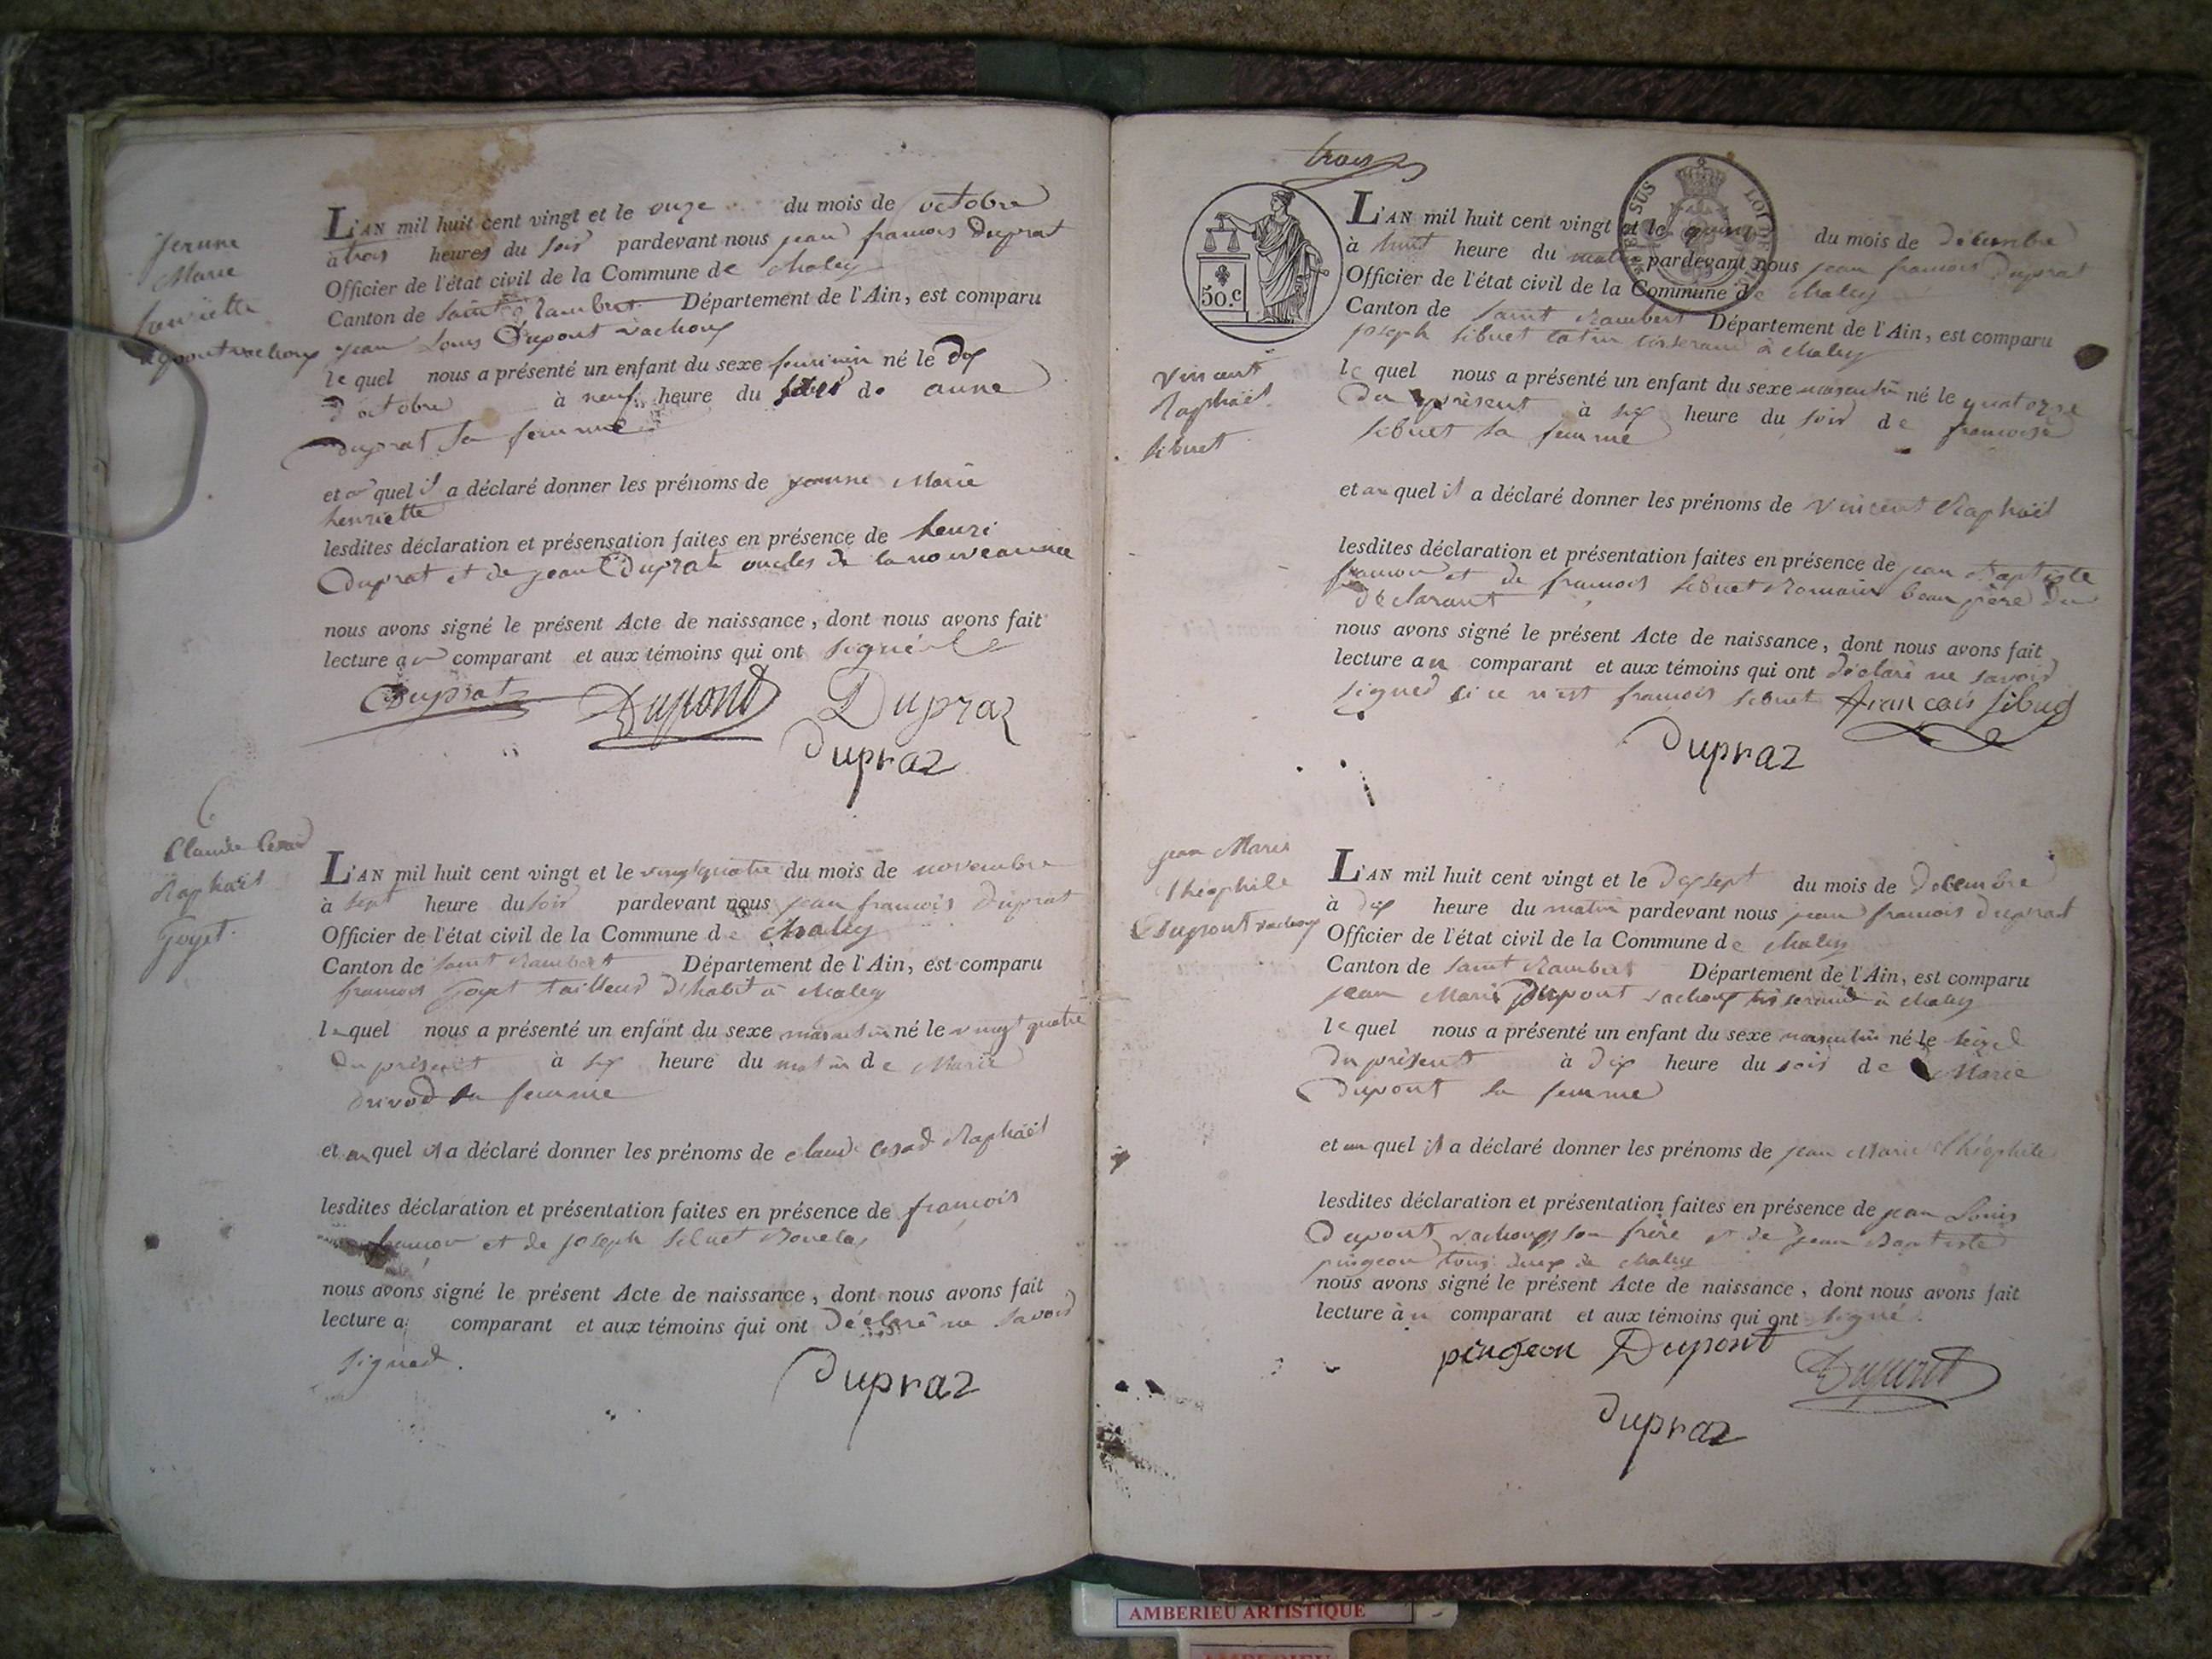 Jeanne
Marie
henriette
dupont vachoux
L'AN mil huit cent vingt et le onze du mois de octobre
à trois heures du soir pardevant nous jean francois Duprat
Officier de l'état civil de la Commune de chaley
Canton de Saint Rambert Département de l'Ain, est comparu
jean Louis Dupont vachoux
le quel nous a présenté un enfant du sexe feminin né le dix
d'octobre à neuf heure du soir de anne
duprat sa femme
et au quel il a déclaré donner les prénoms de jeanne Marie
henriette
lesdites déclaration et présensation faites en présence de henri
Duprat et de jean Duprat oncles de la nouveaunée
nous avons signé le présent Acte de naissance, dont nous avons fait
lecture au comparant et aux témoins qui ont signé
Duprat Dupont Dupraz
dupraz
Claude Cesard
Raphaël
Goyet
L'AN mil huit cent vingt et le vingt quatre du mois de novembre
à sept heure du soir pardevant nous jean francois Duprat
Officier de l'état civil de la Commune de chaley
Canton de Saint Rambert Département de l'Ain, est comparu
francois Goyet tailleur d'habit à chaley
le quel nous a présenté un enfant du sexe masculin né le vingt quatre
du présent à six heure du matin de Marie
sa femme
et au quel il a déclaré donner les prénoms de claude Cesard Raphaël
lesdites déclaration et présentation faites en présence de françois
et de joseph Sibuet
nous avons signé le présent Acte de naissance, dont nous avons fait
lecture a comparant et aux témoins qui ont déclaré ne savoir
signed.
dupraz
trois
SUS
LOI DE
50.c
Vincent
Raphaël
Sibuet
L'AN mil huit cent vingt et le quinze du mois de décembre
à huit heure du matin pardevant nous jean francois Duprat
Officier de l'état civil de la Commune de chaley
Canton de Saint Rambert Département de l'Ain, est comparu
joseph Sibuet tisserand à chaley
le quel nous a présenté un enfant du sexe masculin né le quatorze
Du présent à six heure du soir de francoise
Sibuet sa femme
et au quel il a déclaré donner les prénoms de Vincent Raphaël
lesdites déclaration et présentation faites en présence de jean Baptiste
et de francois Sibuet Romain beau père du
déclarant
nous avons signé le présent Acte de naissance, dont nous avons fait
lecture au comparant et aux témoins qui ont déclaré ne savoir
signed si ce n'est francois Sibuet francois Sibuet
dupraz
jean Marie
Théophile
Dupont vachoux
L'AN mil huit cent vingt et le dix sept du mois de Décembre
à dix heure du matin pardevant nous jean francois duprat
Officier de l'état civil de la Commune de chaley
Canton de Saint Rambert Département de l'Ain, est comparu
jean Marie Dupont vachoux tisserand à chaley
le quel nous a présenté un enfant du sexe masculin né le seize
du présent à dix heure du soir de Marie
Dupont sa femme
et au quel il a déclaré donner les prénoms de jean Marie Théophile
lesdites déclaration et présentation faites en présence de jean Louis
Dupont vachoux son frère et de jean Baptiste
pingeon tous deux de chaley
nous avons signé le présent Acte de naissance, dont nous avons fait
lecture au comparant et aux témoins qui ont signé.
pingeon Dupont
Dupont
dupraz
AMBERIEU ARTISTIQUE
AMBERIEU